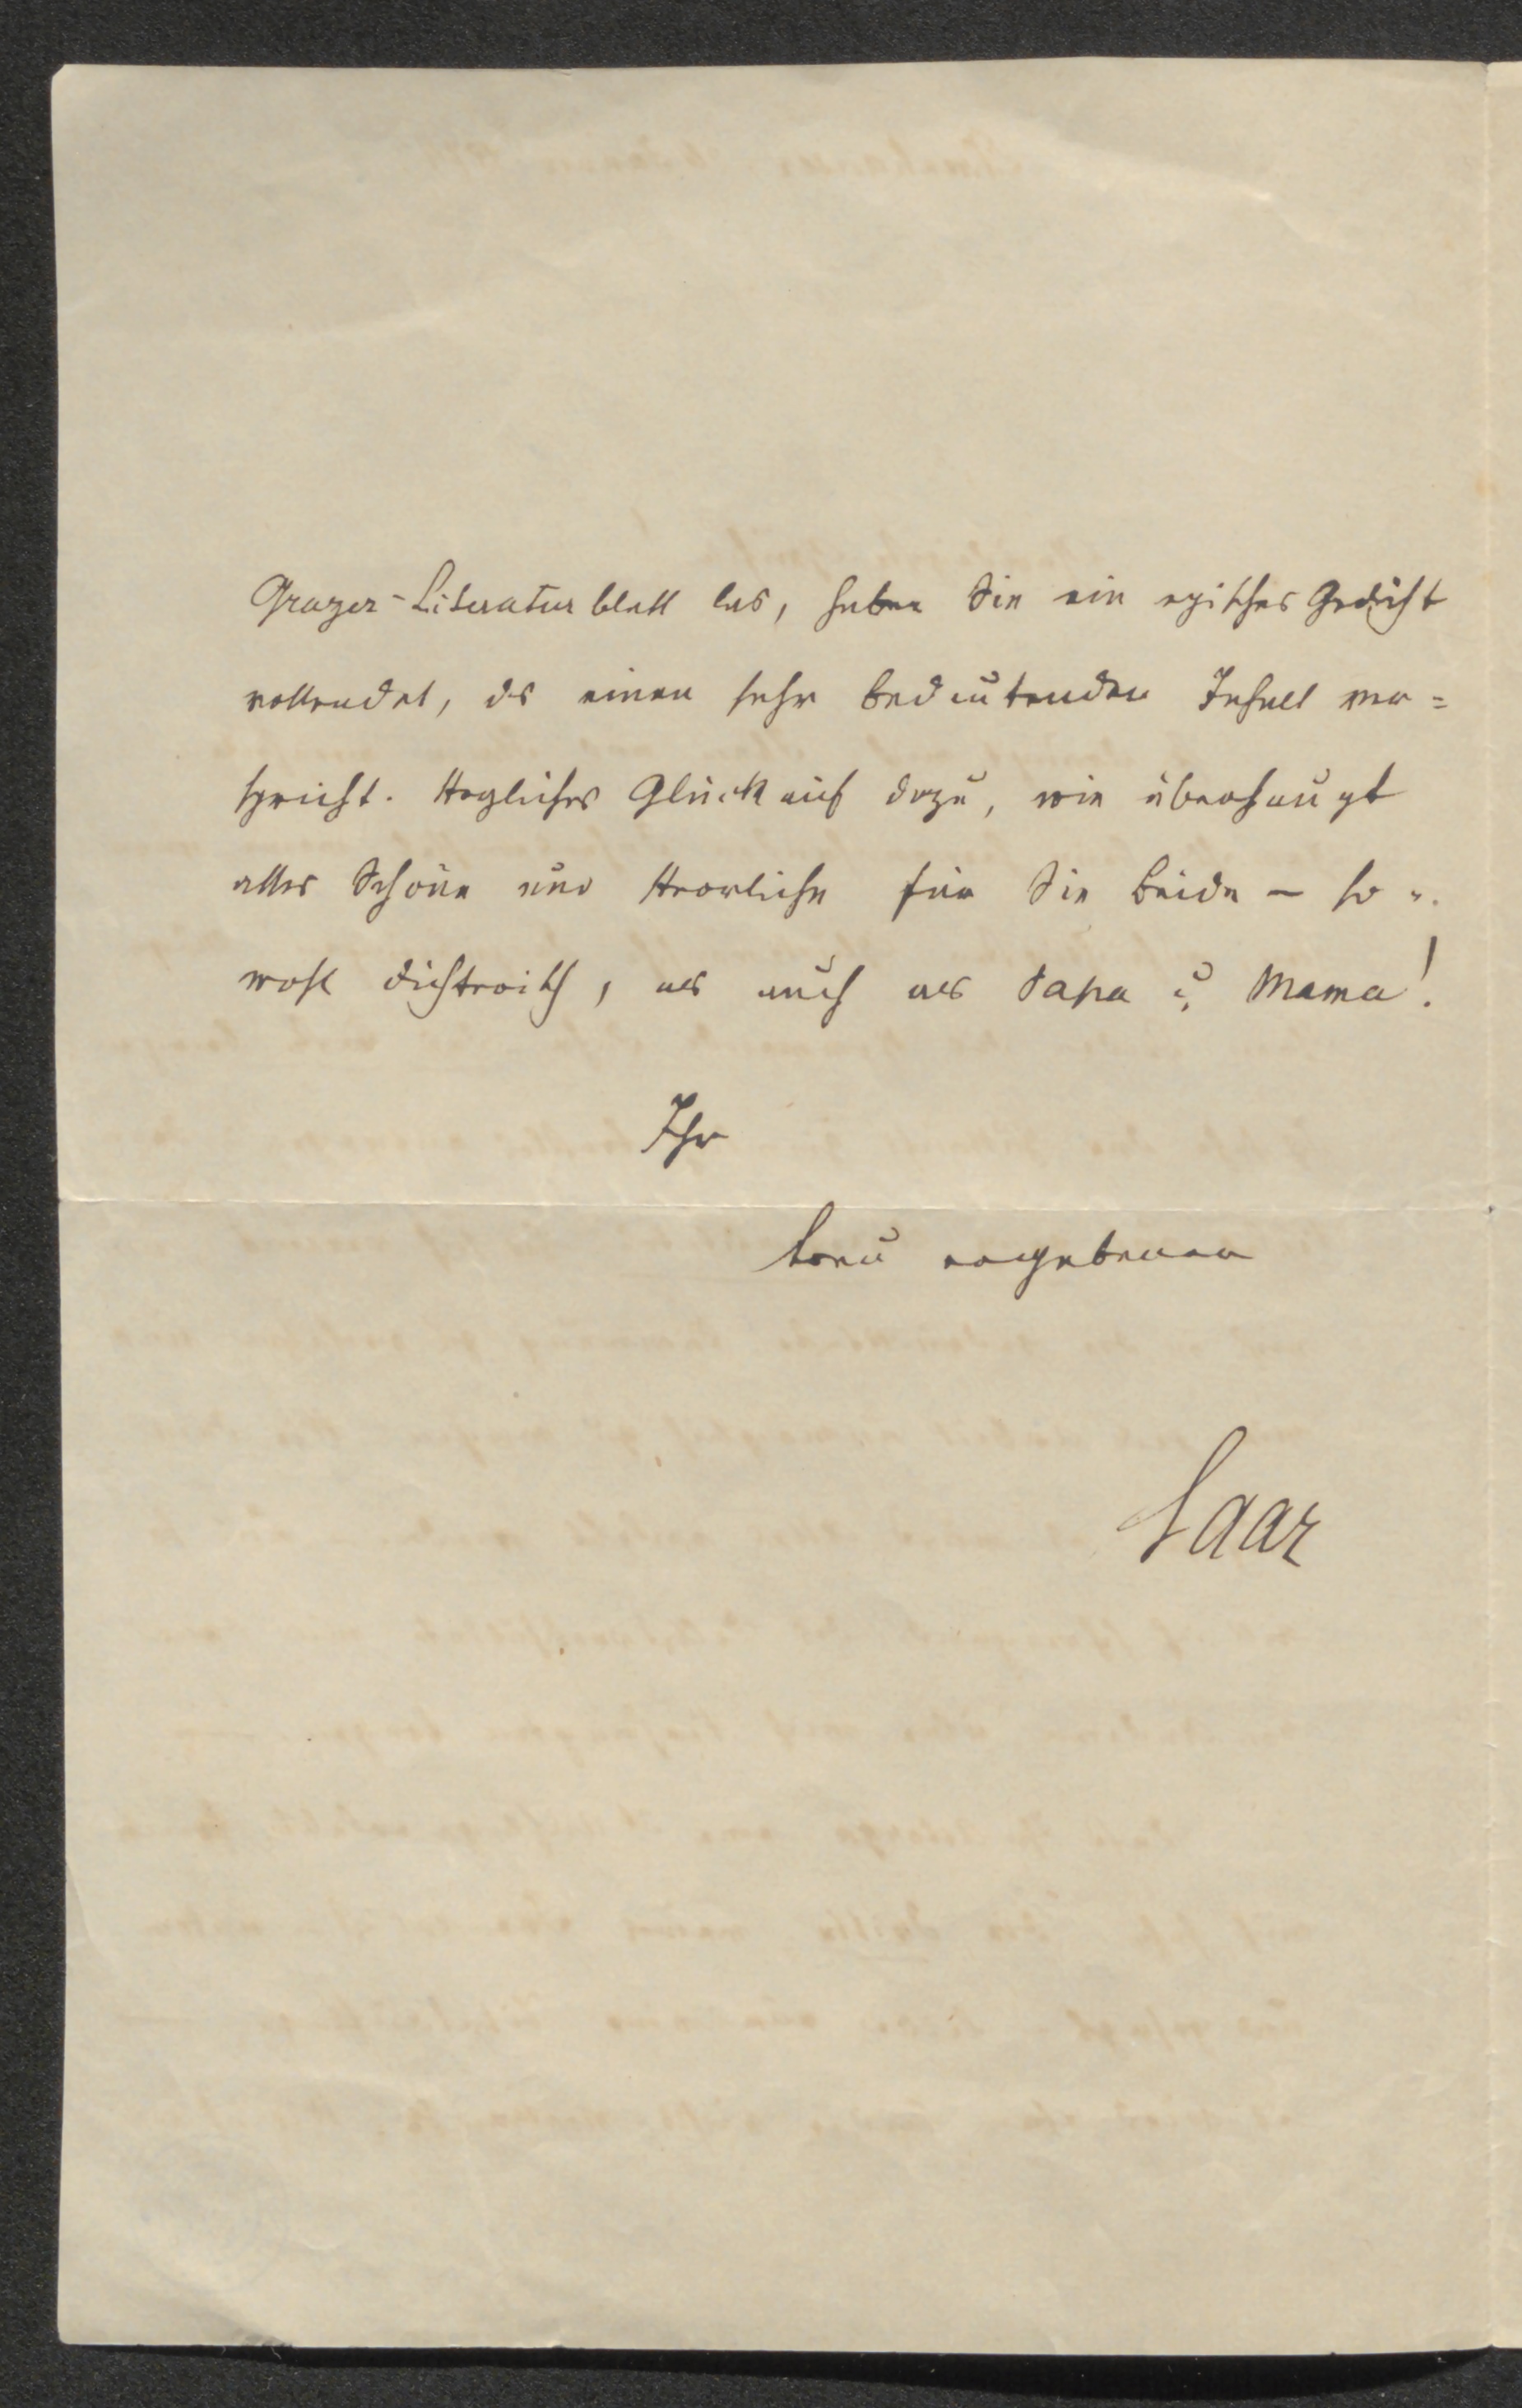 Grazer-Literaturblatt las, haben Sie ein episches Gedicht
vollendet, das einen sehr bedeutenden Inhalt ver=
spricht. Herzliches Glückauf dazu, wie überhaupt
alles Schöne und Herrliche für Sie beide – so=
wohl dichterisch, als auch als Papa u. Mama!
Ihr
treu ergebener
Saar